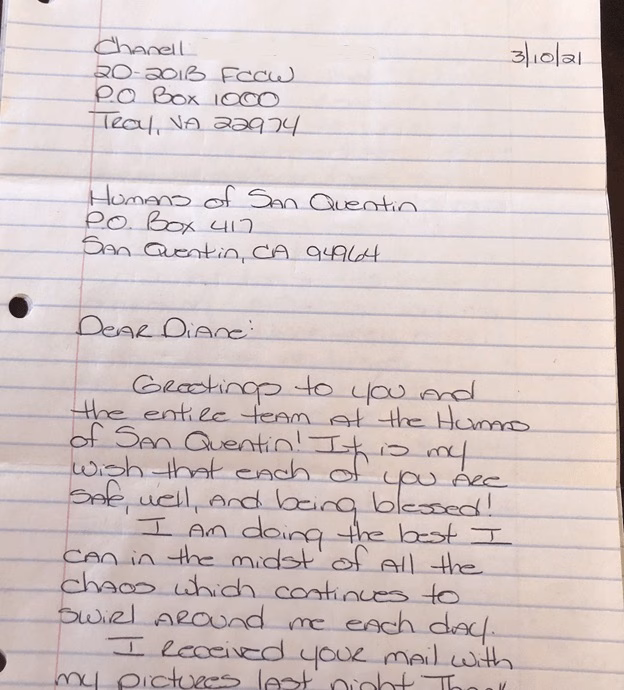 Chanell
3/10/21
20-201B FCCW
P.O Box 1000
Troy, VA 22974
Humans of San Quentin
P.O. Box 417
San Quentin, CA 94964
Dear Diane:
Greetings to you and
the entire team at the Humans
of San Quentin! It is my
wish that each of you are
safe, well, and being blessed!
I am doing the best I
can in the midst of all the
chaos which continues to
swirl around me each day.
I received your mail with
my pictures last night Thank